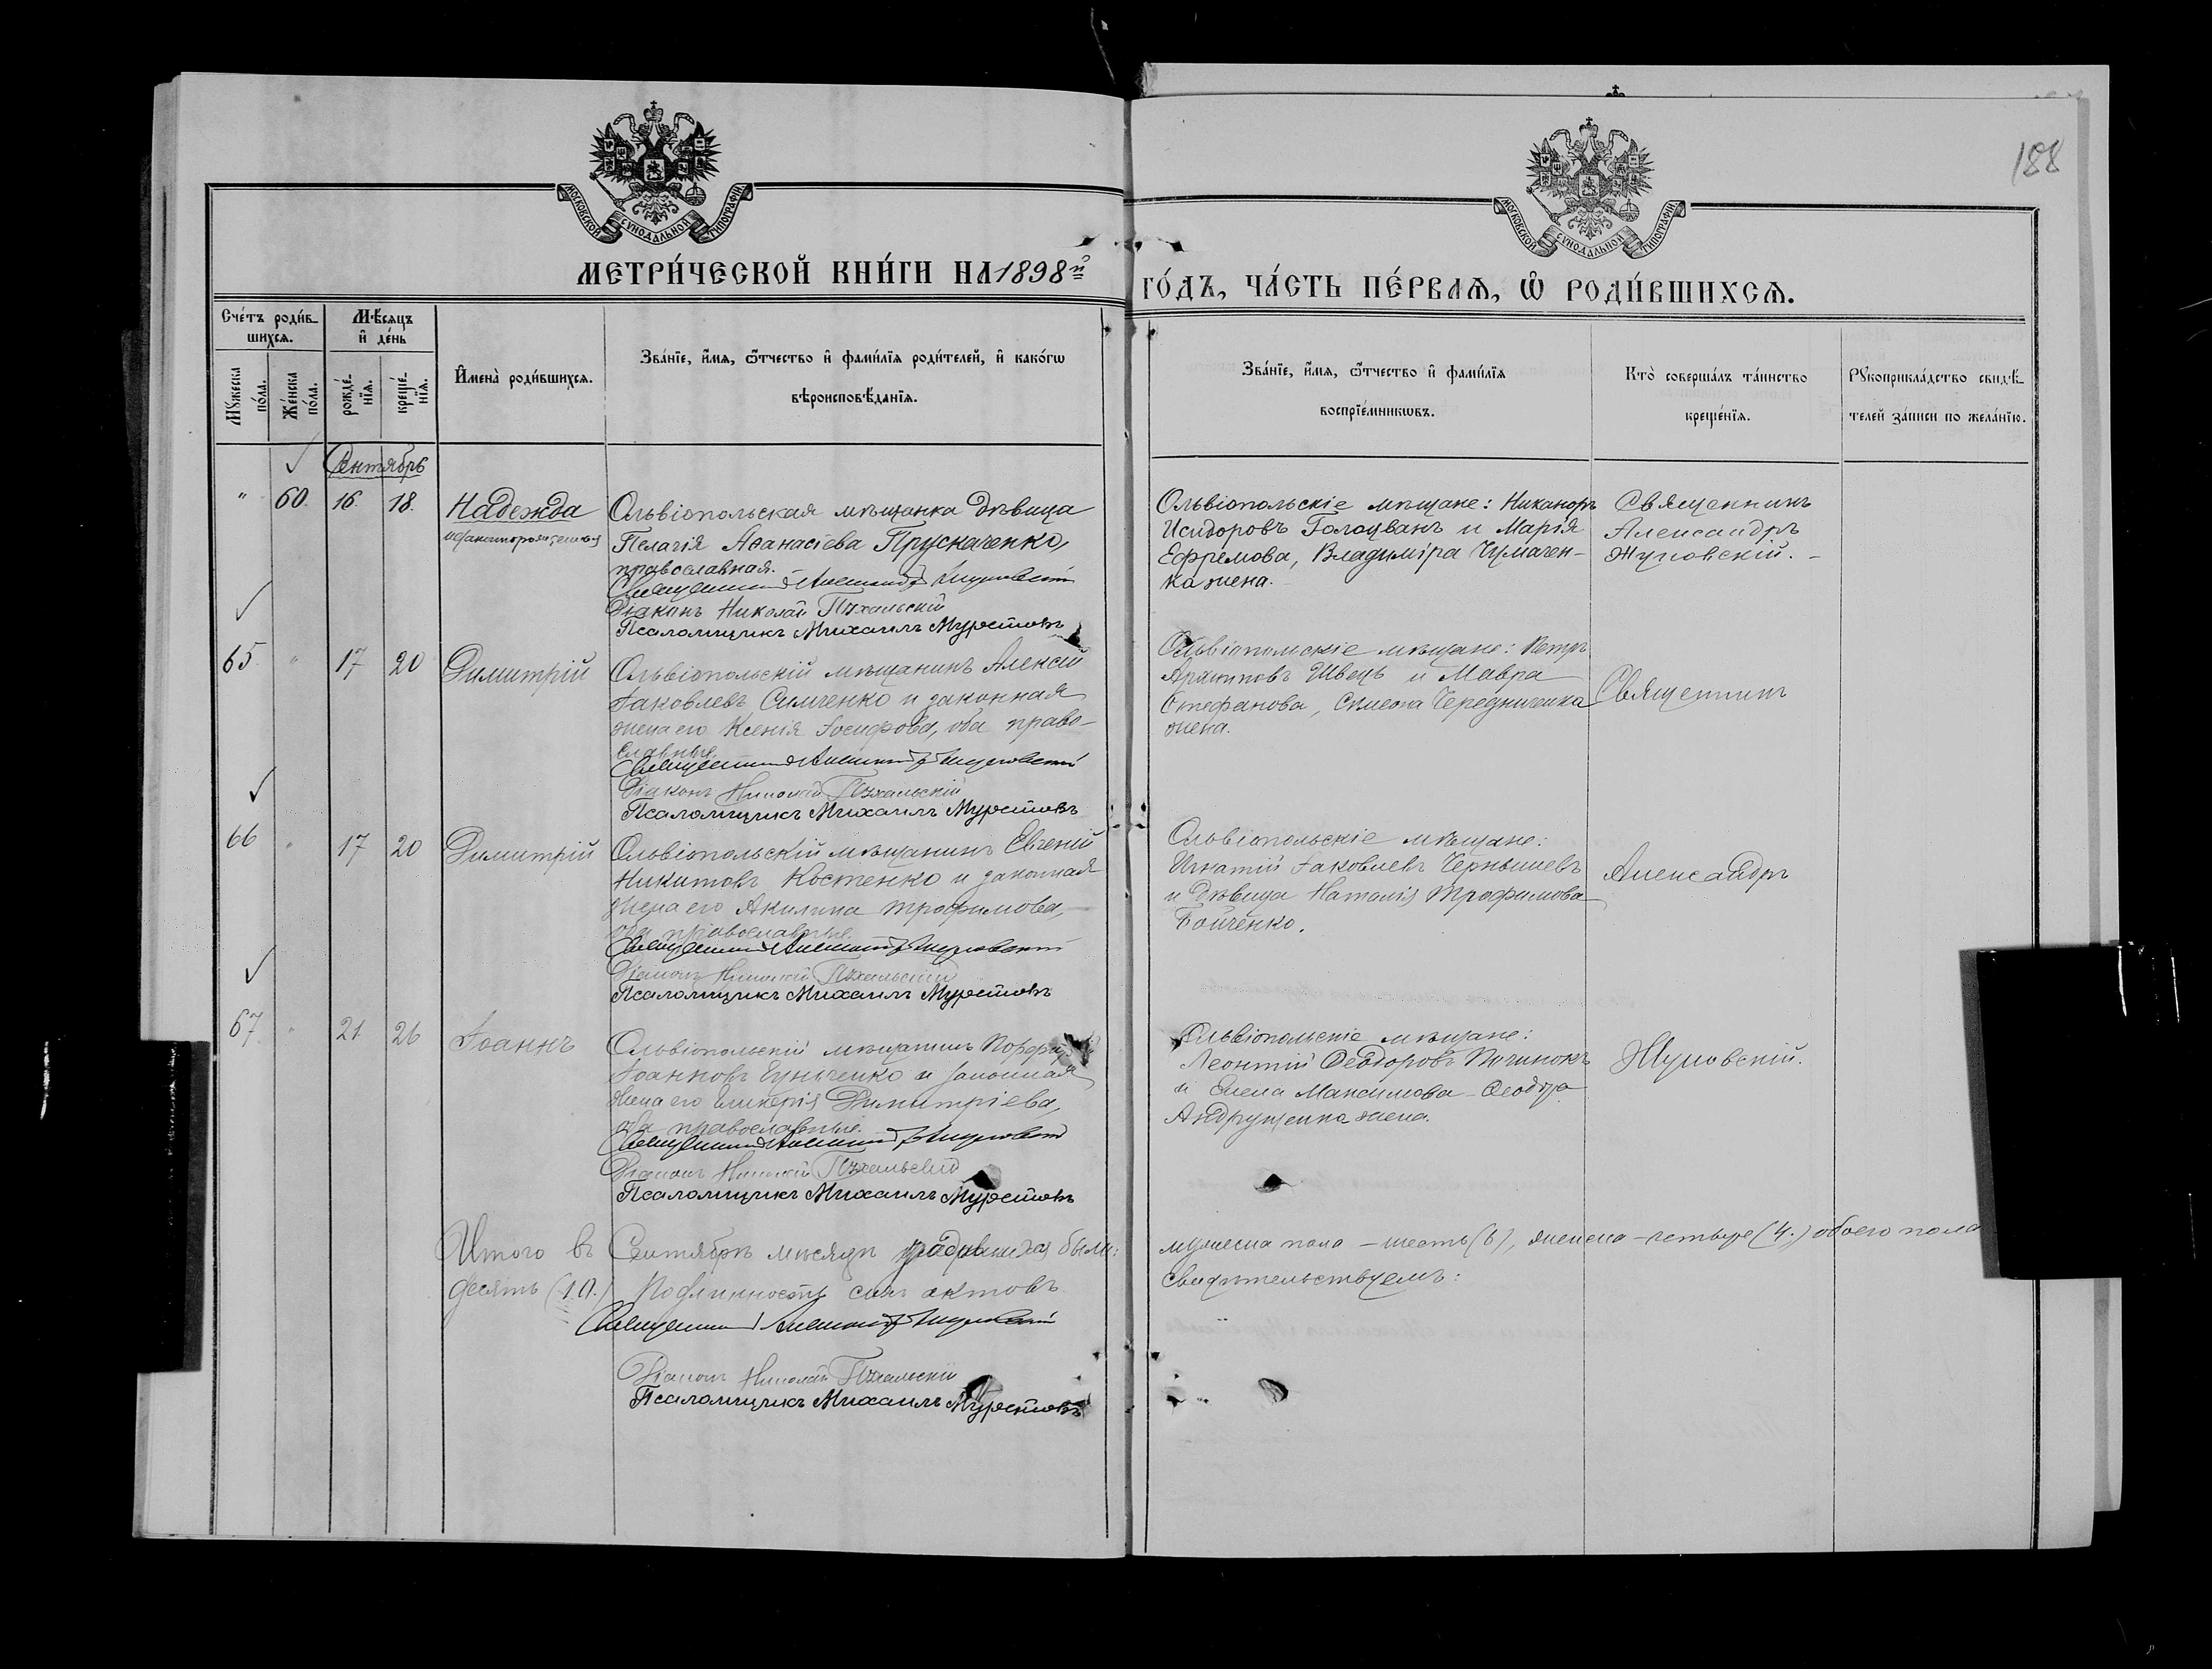 188
МОСКОВСКОЙ СѴНОДАЛЬНОЙ ТИПОГРАФІИ
МОСКОВСКОЙ СѴНОДАЛЬНОЙ ТИПОГРАФІИ
МЕТРИ́ЧЕСКОЙ КНИ́ГИ НА 1898й
ГО́ДЪ, ЧА́СТЬ ПЕ́РВАѦ, Ѡ҆ РОДИ́ВШИХСѦ.
Сче́тъ роди́в-
шихсѧ.
Мѣ́сѧцъ
и҆ де́нь
Мꙋ́жеска
по́ла.
Же́нска
по́ла.
рожде́-
нїѧ.
креще́-
нїѧ.
И҆мена̀ роди́вшихсѧ.
Зва́нїе, и҆́мѧ, ѻ҆́тчество и҆ фами́лїѧ роди́телей, и҆ како́гѡ
вѣроисповѣ́данїѧ.
Зва́нїе, и҆́мѧ, ѻ҆́тчество и҆ фами́лїѧ
воспрїе́мникѡвъ.
Кто̀ соверша́лъ та́инство
креще́нїѧ.
Рꙋкоприкла́дство свидѣ́-
телей за́писи по жела́нїю.
Сентябрь
" 60. 16. 18. Надежда
незаконнорожденная
Ольвіопольская мѣщанка дѣвица
Пелагія Аѳанасіева Прусначенко,
православная.
Священникъ Александръ Жуковскій
Діаконъ Николай Пухальскій
Псаломщикъ Михаилъ Муретовъ
Ольвіопольскіе мѣщане: Никаноръ
Исидоровъ Голоцванъ и Марія
Ефремова, Владиміра Чумачен-
ка жена.
Священникъ
Александръ
Жуковскій.
65. " 17 20 Димитрій
Ольвіопольскій мѣщанинъ Алексій
Іаковлевъ Симченко и законная
жена его Ксенія Іосифова, оба право-
славные.
Священникъ Александръ Жуковскій
Діаконъ Николай Пухальскій
Псаломщикъ Михаилъ Муретовъ
Ольвіопольскіе мѣщане: Петръ
Архиповъ Швецъ и Мавра
Стефанова, Симеона Чередниченка
жена.
Священникъ
66 " 17 20 Димитрій
Ольвіопольскій мѣщанинъ Евгеній
Никитовъ Костенко и законная
жена его Акилина Трофимова,
оба православные.
Священникъ Александръ Жуковскій
Діаконъ Николай Пухальскій
Псаломщикъ Михаилъ Муретовъ
Ольвіопольскіе мѣщане:
Игнатій Іаковлевъ Чернышевъ
и дѣвица Наталія Трофимова
Бойченко.
Александръ
67. " 21 26 Іоаннъ
Ольвіопольскій мѣщанинъ
Іоанновъ и законная
жена его Гликерія Димитріева,
оба православные.
Священникъ Александръ Жуковскій
Діаконъ Николай Пухальскій
Псаломщикъ Михаилъ Муретовъ
Ольвіопольскіе мѣщане:
Леонтій Ѳеодоровъ Починокъ
и Елена Максимова Ѳеодора
Андрущенка жена.
Жуковскій.
Итого въ Сентябрѣ мѣсяцѣ родившихся было:
мужеска пола – шесть (6), женска – четыре (4.) обоего пола
десять (10.) Подлинность сихъ актовъ
свидѣтельствуемъ:
Священникъ Александръ Жуковскій
Діаконъ Николай Пухальскій
Псаломщикъ Михаилъ Муретовъ